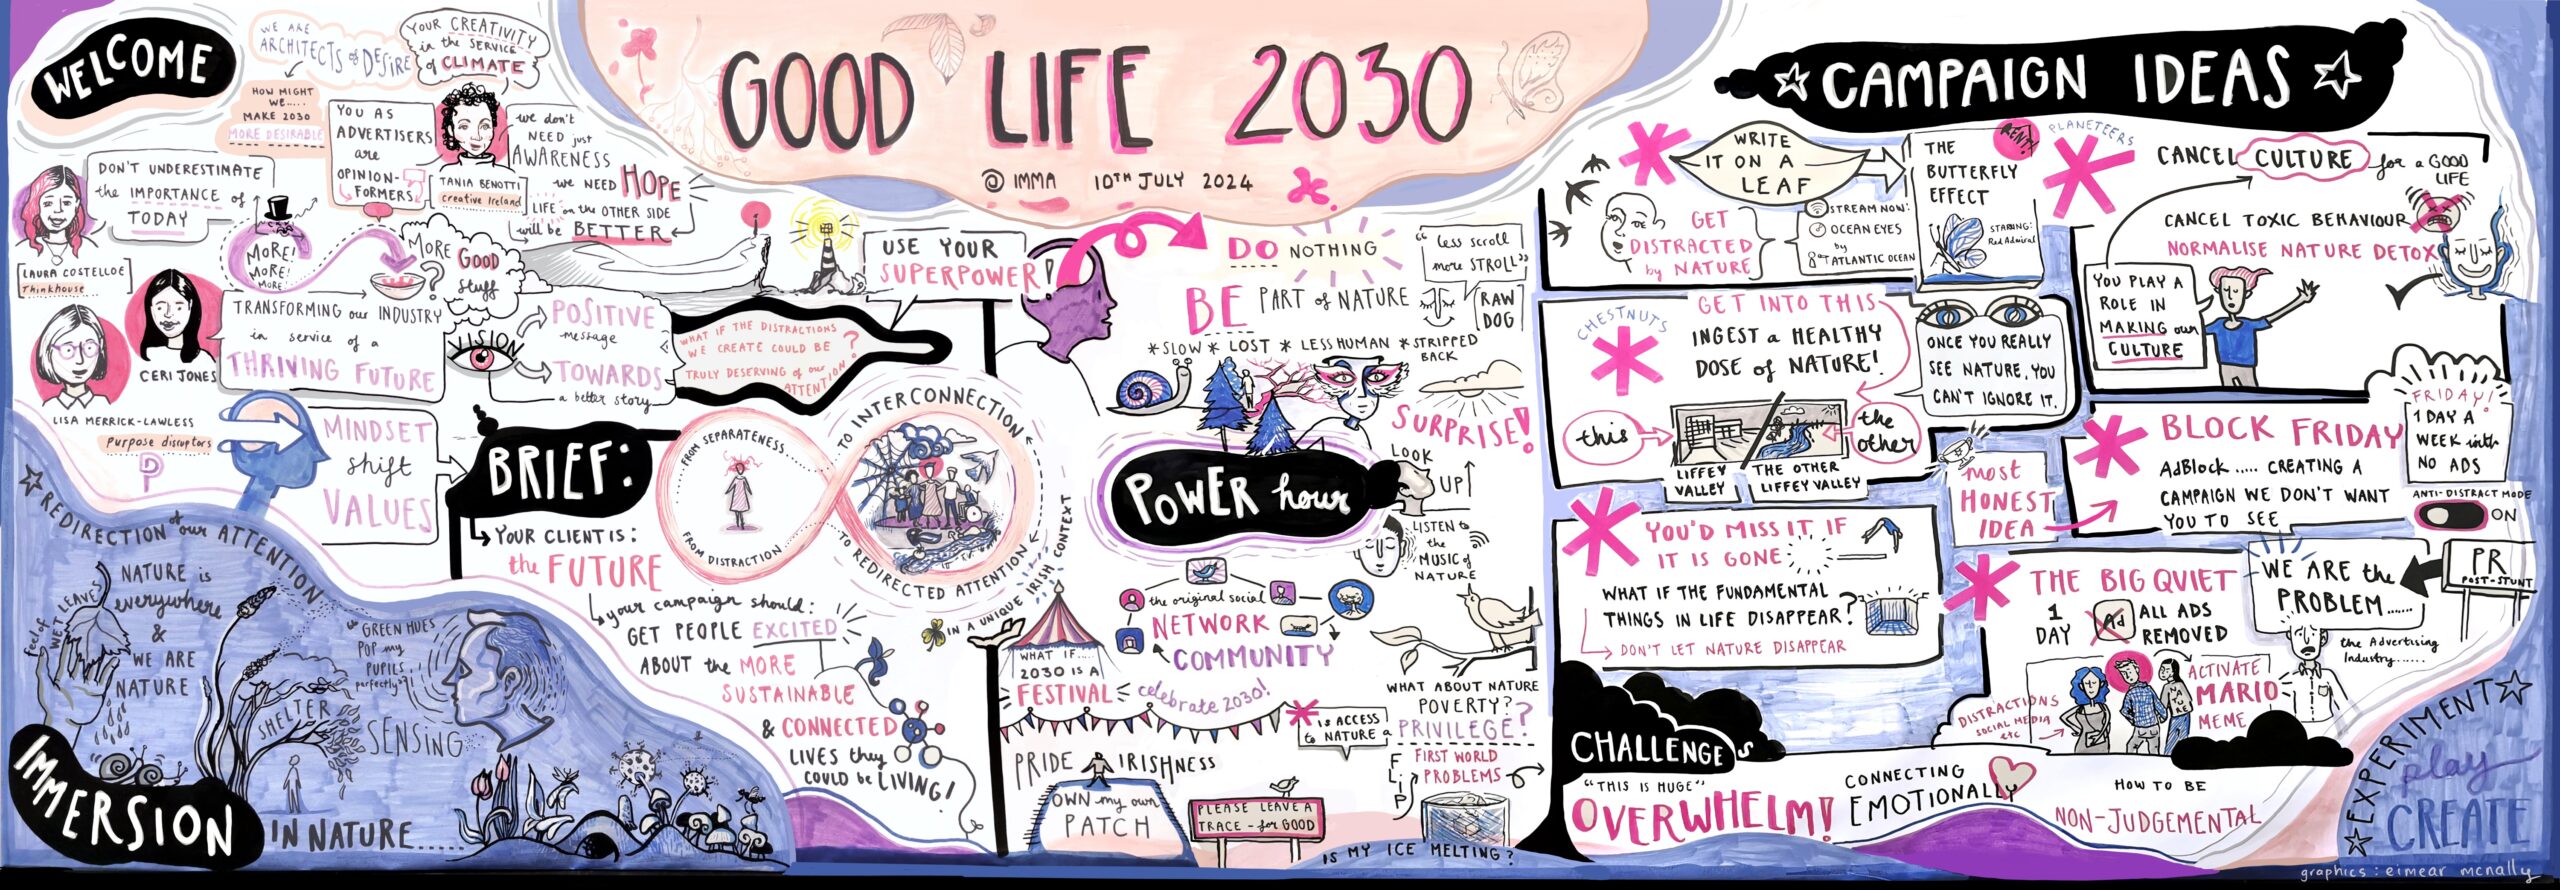 WELCOME
WE ARE
ARCHITECTS of DESIRE
HOW MIGHT
WE.....
MAKE 2030
MORE DESIRABLE
YOUR CREATIVITY
in the SERVICE
of CLIMATE
YOU AS
ADVERTISERS
are
OPINION-
FORMERS
TANIA BENOTTI
creative Ireland
we don't
NEED just
AWARENESS
we NEED HOPE
LIFE on the OTHER SIDE
will be BETTER
DON'T UNDERESTIMATE
the IMPORTANCE of
TODAY
LAURA COSTELLOE
Thinkhouse
MORE!
MORE!
MORE!
MORE GOOD
stuff
?
CERI JONES
TRANSFORMING our INDUSTRY
in service of a
THRIVING FUTURE
LISA MERRICK-LAWLESS
purpose disruptors
P
VISION
POSITIVE
message
TOWARDS
a better story
MINDSET
shift
VALUES
GOOD LIFE 2030
@ IMMA 10TH JULY 2024
USE YOUR
SUPERPOWER!
WHAT IF THE DISTRACTIONS
WE CREATE COULD BE
TRULY DESERVING of our
ATTENTION?
BRIEF:
YOUR CLIENT IS:
the FUTURE
your campaign should:
GET PEOPLE EXCITED
ABOUT the MORE
SUSTAINABLE
& CONNECTED
LIVES they
COULD be LIVING!
FROM SEPARATENESS.....
TO INTERCONNECTION
FROM DISTRACTION.....
TO REDIRECTED ATTENTION
IN A UNIQUE IRISH CONTEXT
REDIRECTION of our ATTENTION
feel of WET LEAVES
NATURE is
everywhere
&
WE ARE
NATURE
"GREEN HUES
POP my
PUPILS
perfectly"!
SHELTER
SENSING
IMMERSION
IN NATURE.....
DO NOTHING
"less scroll
more STROLL"
BE PART of NATURE
RAW
DOG
*SLOW * LOST * LESS HUMAN * STRIPPED
BACK
SURPRISE!
POWER hour
LOOK
UP
LISTEN to
the
MUSIC of
NATURE
the original social
NETWORK
COMMUNITY
WHAT IF....
2030 IS A
FESTIVAL
celebrate 2030!
PRIDE IRISHNESS
OWN my own
PATCH
PLEASE LEAVE A
TRACE - for GOOD
WHAT ABOUT NATURE
POVERTY?
IS ACCESS
to NATURE a
PRIVILEGE?
FLIP
FIRST WORLD
PROBLEMS
IS MY ICE MELTING?
CAMPAIGN IDEAS
WRITE
IT ON A
LEAF
GET
DISTRACTED
by NATURE
STREAM NOW:
OCEAN EYES
by
ATLANTIC OCEAN
THE
BUTTERFLY
EFFECT
RENT!
STARRING:
Red Admiral
PLANETEERS
CANCEL CULTURE for a GOOD
LIFE
CANCEL TOXIC BEHAVIOUR
NORMALISE NATURE DETOX
YOU PLAY A
ROLE IN
MAKING our
CULTURE
CHESTNUTS
GET INTO THIS
INGEST a HEALTHY
DOSE of NATURE!
this
the
other
LIFFEY
VALLEY
THE OTHER
LIFFEY VALLEY
ONCE YOU REALLY
SEE NATURE, YOU
CAN'T IGNORE IT.
most
HONEST
IDEA
BLOCK FRIDAY
AdBlock ..... CREATING A
CAMPAIGN WE DON'T WANT
YOU TO SEE
FRIDAY!
1 DAY A
WEEK with
NO ADS
ANTI-DISTRACT MODE
ON
YOU'D MISS IT IF
IT IS GONE
WHAT IF THE FUNDAMENTAL
THINGS IN LIFE DISAPPEAR?
DON'T LET NATURE DISAPPEAR
THE BIG QUIET
1
DAY
Ad
ALL ADS
REMOVED
WE ARE the
PROBLEM......
PR
POST-STUNT
the Advertising
Industry......
DISTRACTIONS
SOCIAL MEDIA
etc
NATURE
ACTIVATE
MARIO
MEME
CHALLENGEs
"THIS IS HUGE"
OVERWHELM!
CONNECTING
EMOTIONALLY
HOW TO BE
NON-JUDGEMENTAL
EXPERIMENT
play
CREATE
graphics: eimear mcnally